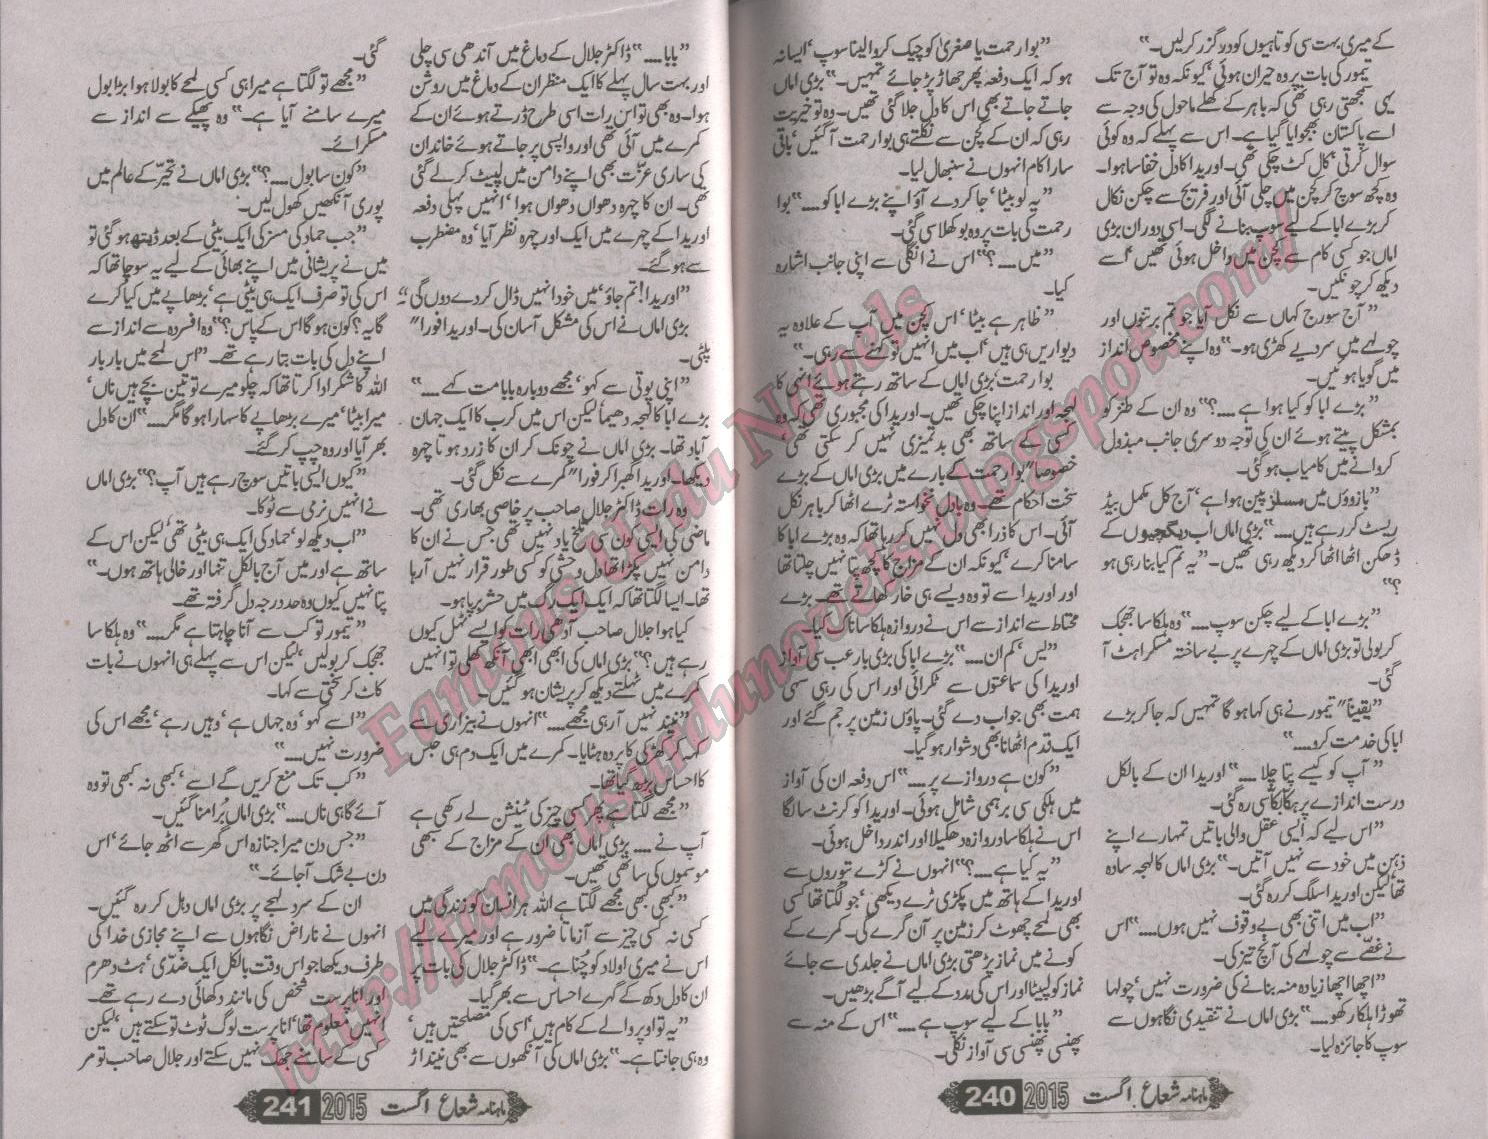 کے میری بہت سی کوتاہیوں کو درگزر کرلیں۔"
تیمور کی بات پر وہ حیران ہوئی' کیونکہ وہ تو آج تک
یہی سمجھتی رہی تھی کہ باہر کے کھلے ماحول کی وجہ سے
اسے پاکستان بھجوایا گیا ہے۔ اس سے پہلے کہ وہ کوئی
سوال کرتی' کال کٹ چکی تھی۔ اوریدا کا دل خفا سا ہوا۔
وہ کچھ سوچ کر کچن میں چلی آئی اور فریج سے چکن نکال
کر بڑے ابا کے لیے سوپ بنانے لگی۔ اسی دوران بڑی
اماں جو کسی کام سے کچن میں داخل ہوئی تھیں' اسے
دیکھ کر چونکیں۔
"آج سورج کہاں سے نکل آیا جو تم برتنوں اور
چولہے میں سر دیے کھڑی ہو۔" وہ اپنے مخصوص انداز
میں گویا ہوئیں۔
"بڑے ابا کو کیا ہوا ہے ....؟" وہ ان کے طنز کو
بمشکل پیتے ہوئے ان کی توجہ دوسری جانب مبذول
کروانے میں کامیاب ہو گئی۔
"بازوؤں میں مسلز پین ہوا ہے' آج کل مکمل بیڈ
ریسٹ کر رہے ہیں...." بڑی اماں اب دیگچیوں کے
ڈھکن اٹھا اٹھا کر دیکھ رہی تھیں۔ "یہ تم کیا بنا رہی ہو
؟"
"بڑے ابا کے لیے چکن سوپ...." وہ ہلکا سا جھجک
کر بولی تو بڑی اماں کے چہرے پر بے ساختہ مسکراہٹ آ
گئی۔
"یقیناً" تیمور نے ہی کہا ہوگا تمہیں کہ جا کر بڑے
ابا کی خدمت کرو...."
"آپ کو کیسے پتا چلا ...." اوریدا ان کے بالکل
درست اندازے پر ہکا بکا سی رہ گئی۔
"اس لیے کہ ایسی عقل والی باتیں تمہارے اپنے
ذہن میں خود سے نہیں آتیں۔" بڑی اماں کا لہجہ سادہ
تھا لیکن اوریدا سلگ کر رہ گئی۔
"اب میں اتنی بھی بے وقوف نہیں ہوں...." اس
نے غصّے سے چولہے کی آنچ تیز کی۔
"اچھا اچھا زیادہ منہ بنانے کی ضرورت نہیں' چولہا
تھوڑا ہلکا رکھو...." بڑی اماں نے تنقیدی نگاہوں سے
سوپ کا جائزہ لیا۔
"بوا رحمت یا صغریٰ کو چیک کروا لینا سوپ' ایسا نہ
ہو کہ ایک دفعہ پھر جھاڑ پڑ جائے تمہیں۔" بڑی اماں
جاتے جاتے بھی اس کا دل جلا گئی تھیں۔ وہ تو خیریت
رہی کہ ان کے کچن سے نکلتے ہی بوا رحمت آگئیں' باقی
سارا کام انہوں نے سنبھال لیا۔
"یہ لو بیٹا' جا کر دے آؤ اپنے بڑے ابا کو...." بوا
رحمت کی بات پر وہ بوکھلا سی گئی۔
"میں ....؟" اس نے انگلی سے اپنی جانب اشارہ
کیا۔
"ظاہر ہے بیٹا' اس کچن میں آپ کے علاوہ یہ
دیواریں ہی ہیں' اب میں انہیں تو کہنے سے رہی۔"
بوا رحمت' بڑی اماں کے ساتھ رہتے ہوئے انہی کا
لہجہ اور انداز اپنا چکی تھیں۔ اوریدا کی مجبوری تھی کہ وہ
کسی کے ساتھ بھی بدتمیزی نہیں کر سکتی تھی'
خصوصاً" بوا رحمت کے بارے میں بڑی اماں کے بڑے
سخت احکام تھے۔ وہ بادل نخواستہ ٹرے اٹھا کر باہر نکل
آئی۔ اس کا ذرا بھی دل نہیں کر رہا تھا کہ وہ بڑے ابا کا
سامنا کرے' کیونکہ ان کے مزاج کا کچھ پتا نہیں چلتا تھا
اور اوریدا سے تو وہ ویسے ہی خار کھاتے تھے۔ بڑے
محتاط سے انداز سے اس نے دروازہ ہلکا سا ناک کیا۔
"یس' کم ان...." بڑے ابا کی بڑی بارعب سی آواز
اوریدا کی سماعتوں سے ٹکرائی اور اس کی رہی سہی
ہمت بھی جواب دے گئی۔ پاؤں زمین پر جم گئے اور
ایک قدم اٹھانا بھی دشوار ہو گیا۔
"کون ہے دروازے پر...." اس دفعہ ان کی آواز
میں ہلکی سی برہمی شامل ہوئی۔ اوریدا کو کرنٹ سا لگا
اس نے ہلکا سا دروازہ دھکیلا اور اندر داخل ہوئی۔
"یہ کیا ہے ....؟" انہوں نے کڑے تیوروں سے
اوریدا کے ہاتھ میں پکڑی ٹرے دیکھی' جو لگتا تھا کسی
بھی لمحے چھوٹ کر زمین پر آن گرے گی۔ کمرے کے
کونے میں نماز پڑھتی بڑی اماں نے جلدی سے جائے
نماز کو لپیٹا اور اس کی مدد کے لیے آگے بڑھیں۔
"بابا کے لیے سوپ ہے ...." اس کے منہ سے
پھنسی پھنسی سی آواز نکلی۔
ماہنامہ شعاع اگست 2015 240
"بابا....." ڈاکٹر جلال کے دماغ میں آندھی سی چلی
اور بہت سال پہلے کا ایک منظر ان کے دماغ میں روشن
ہوا۔ وہ بھی تو اس رات اسی طرح ڈرتے ہوئے ان کے
کمرے میں آئی تھی اور واپسی پر جاتے ہوئے خاندان
کی ساری عزّت بھی اپنے دامن میں لپیٹ کر لے گئی
تھی۔ ان کا چہرہ دھواں دھواں ہوا' انہیں پہلی دفعہ
اوریدا کے چہرے میں ایک اور چہرہ نظر آیا' وہ مضطرب
سے ہو گئے۔
"اوریدا! تم جاؤ' میں خود انہیں ڈال کر دے دوں گی"
بڑی اماں نے اس کی مشکل آسان کی۔ اوریدا فورا"
پلٹی۔
"اپنی پوتی سے کہو' مجھے دوبارہ بابا مت کہے ...."
بڑے ابا کا لہجہ دھیما لیکن اس میں کرب کا ایک جہان
آباد تھا۔ بڑی اماں نے چونک کر ان کا زرد ہوتا چہرہ
دیکھا۔ اوریدا گھبرا کر فورا" کمرے سے نکل گئی۔
وہ رات ڈاکٹر جلال صاحب پر خاصی بھاری تھی۔
ماضی کی ایسی کون سی تلخ یاد نہیں تھی جس نے ان کا
دامن نہیں پکڑا تھا' دل وحشی کو کسی طور قرار نہیں آرہا
تھا۔ ایسا لگتا تھا کہ ایک ایک رگ میں حشر برپا ہو۔
"کیا ہوا جلال صاحب آدھی رات کو ایسے ٹہل کیوں
رہے ہیں؟" بڑی اماں کی ابھی ابھی آنکھ کھلی تو انہیں
کمرے میں ٹہلتے دیکھ کر پریشان ہو گئیں۔
"نیند نہیں آرہی مجھے...." انہوں نے بیزاری سے
کہہ کر کھڑکی کا پردہ ہٹایا۔ کمرے میں ایک دم ہی حبس
کا احساس بڑھ گیا تھا۔
"مجھے لگتا ہے پھر کسی چیز کی ٹینشن لے رکھی ہے
آپ نے ...." بڑی اماں بھی ان کے مزاج کے سبھی
موسموں کی ساتھی تھیں۔
"کبھی کبھی مجھے لگتا ہے اللہ ہر انسان کو زندگی میں
کسی نہ کسی چیز سے آزماتا ضرور ہے اور میرے لیے
اس نے میری اولاد کو چُنا ہے۔" ڈاکٹر جلال کی بات پر
ان کا دل دکھ کے گہرے احساس سے بھر گیا۔
"یہ تو اوپر والے کے کام ہیں' اسی کی مصلحتیں ہیں'
وہ ہی جانتا ہے۔" بڑی اماں کی آنکھوں سے بھی نیند اڑ
گئی۔
"مجھے تو لگتا ہے میرا ہی کسی لمحے کا بولا ہوا بڑا بول
میرے سامنے آیا ہے۔" وہ پھیکے سے انداز سے
مسکرائے۔
"کون سا بول ....؟" بڑی اماں نے تحیّر کے عالم میں
پوری آنکھیں کھول لیں۔
"جب حماد کی مسز کی ایک بیٹی کے بعد ڈیتھ ہو گئی تو
میں نے پریشانی میں اپنے بھائی کے لیے یہ سوچا تھا کہ
اس کی تو صرف ایک ہی بیٹی ہے' بڑھاپے میں کیا کرے
گا یہ؟ کون ہو گا اس کے پاس؟" وہ افسردہ سے انداز سے
اپنے دل کی بات بتا رہے تھے۔ "اس لمحے میں بار بار
اللہ کا شکر ادا کرتا تھا کہ چلو میرے تو تین بچے ہیں ناں'
میرا بیٹا' میرے بڑھاپے کا سہارا ہو گا مگر....." ان کا دل
بھر آیا اور وہ چپ کر گئے۔
"کیوں ایسی باتیں سوچ رہے ہیں آپ؟" بڑی اماں
نے انہیں نرمی سے ٹوکا۔
"اب دیکھ لو' حماد کی ایک ہی بیٹی تھی' لیکن اس کے
ساتھ ہے اور میں آج بالکل تنہا اور خالی ہاتھ ہوں۔"
پتا نہیں کیوں وہ حد درجہ دل گرفتہ تھے۔
"تیمور تو کب سے آنا چاہتا ہے مگر...." وہ ہلکا سا
جھجک کر بولیں' لیکن اس سے پہلے ہی انہوں نے بات
کاٹ کر سختی سے کہا۔
"اسے کہو' وہ جہاں ہے' وہیں رہے' مجھے اس کی
ضرورت نہیں...."
"کب تک منع کریں گے اسے' کبھی نہ کبھی تو وہ
آئے گا ہی ناں...." بڑی اماں بُرا منا گئیں۔
"جس دن میرا جنازہ اس گھر سے اٹھ جائے' اس
دن بے شک آجائے۔"
ان کے سرد لہجے پر بڑی اماں دہل کر رہ گئیں۔
انہوں نے ناراض نگاہوں سے اپنے مجازی خدا کی
طرف دیکھا جو اس وقت بالکل ایک ضدّی' ہٹ دھرم
اور انا پرست شخص کی مانند دکھائی دے رہے تھے۔
انہیں معلوم تھا' انا پرست لوگ ٹوٹ تو سکتے ہیں' لیکن
کسی کے سامنے جھک نہیں سکتے اور جلال صاحب تو مر
ماہنامہ شعاع اگست 2015 241
Famous Urdu Novels
http://famousurdunovels.blogspot.com/